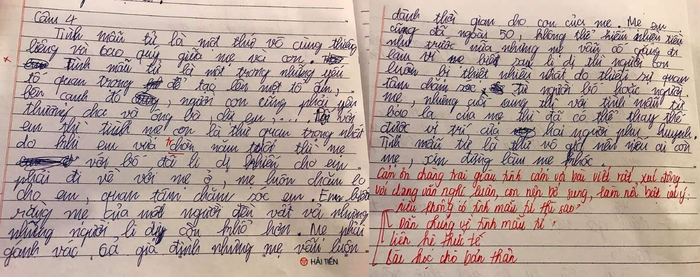 Câu 4
Tình mẫu tử là một thứ vô cùng thiêng
liêng và bao quy giữa mẹ và con.
Tình mẫu tử là một trong những yếu
tố quan trọng để tạo lên một tổ ấm,
bên cạnh đó, người con cũng phải yêu
thương cha và ông bố, dù em.... Tuy vẫn
em thì tình mẹ con là thứ quan trọng nhất
do khi em vừa chòn năm tuổi thì mẹ
vẫn bố đã li dị khiến cho em
phải đi về với mẹ ở, mẹ luôn chăm lo
cho em, quan tâm chăm sóc em. Em biết
rằng mẹ của một người đến vất vả nhưng
những người li dị còn khổ hơn. Mẹ phải
gánh vác cả gia định nhưng mẹ vẫn luôn
HẢI TIẾN
dành thời gian cho con của mẹ. Mẹ em
cũng đã ngoài 50, không thể kiếm nhiều tiền
như trước nữa nhưng mẹ vẫn cố gắng đi
làm vì mẹ biết sau li dị thì người con
luôn bị thiệt nhiều nhất do thiếu sự quan
tâm chăm sóc từ người bố hoặc người
mẹ, nhưng cuối cùng thì với tình mẫu tử
bao la của mẹ thì đã có thể thay thế
được vị trí của hai người phụ huynh
Tình mẫu tử là vô giá nên nếu ai còn
mẹ, xin đừng làm mẹ khóc
Cảm ơn chàng trai giàu tình cảm và bài viết rất xúc động
với dạng văn nghị luận, con nên bổ sung, làm nổi bật các ý:
Nếu không có tình mẫu tử thì sao?
Dẫn chứng về tình mẫu tử
Liên hệ thực tế
Bài học cho bản thân